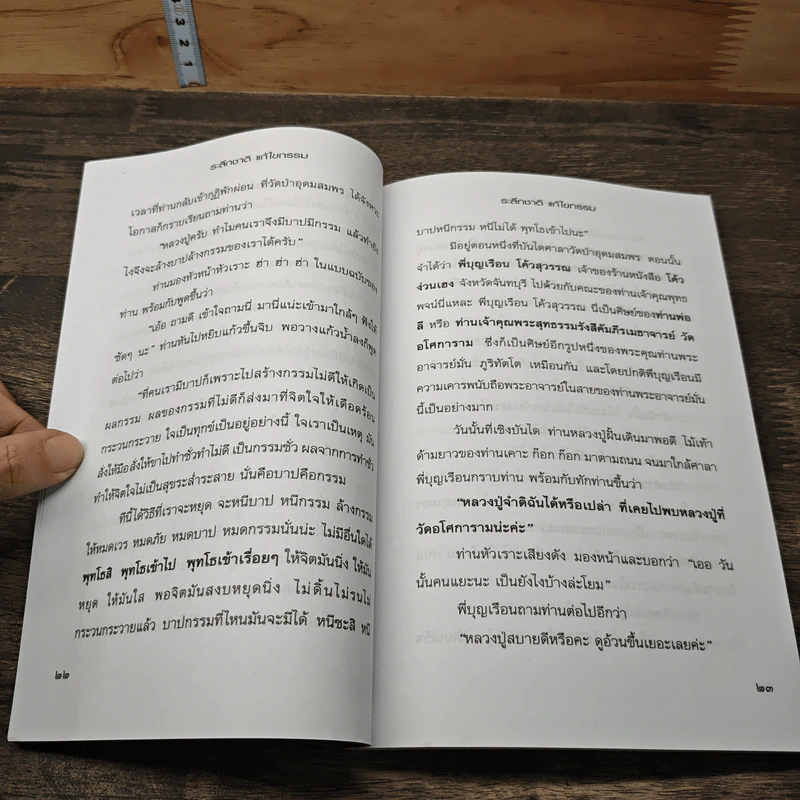 ระลึกชาติ แก้ไขกรรม
เวลาที่ท่านกลับเข้ากุฏิพักผ่อน ที่วัดป่าอุดมสมพร ได้จังหวะ
โอกาสก็กราบเรียนถามท่านว่า
"หลวงปู่ครับ ทำไมคนเราจึงมีบาปมีกรรม แล้วทำยัง
ไงจึงจะล้างบาปล้างกรรมของเราได้ครับ"
ท่านมองหัวหน้าหัวเราะ ฮ่า ฮ่า ฮ่า ในแบบฉบับของ
ท่าน พร้อมกับพูดขึ้นว่า
"เอ้อ ถามดี เข้าใจถามนี่ มานี่แน่ะเข้ามาใกล้ๆ ฟังให้
ชัดๆ นะ" ท่านหันไปหยิบแก้วขึ้นจิบ พอวางแก้วน้ำลงก็พูด
ต่อไปว่า
"ที่คนเรามีบาปก็เพราะไปสร้างกรรมไม่ดีให้เกิดเป็น
ผลกรรม ผลของกรรมที่ไม่ดีก็ส่งมาที่จิตใจให้เดือดร้อน
กระวนกระวาย ใจเป็นทุกข์เป็นอยู่อย่างนี้ ใจเราเป็นเหตุ มัน
สั่งให้มือสั่งให้ขาไปทำชั่วทำไม่ดี เป็นกรรมชั่ว ผลจากการทำชั่ว
ทำให้จิตใจไม่เป็นสุขระส่ำระสาย นั่นคือบาปคือกรรม
ทีนี้ได้วิธีที่เราจะหยุด จะหนีบาป หนีกรรม ล้างกรรม
ให้หมดเวร หมดภัย หมดบาป หมดกรรมนั่นน่ะ ไม่มีอื่นใดได้
พุทโธสิ พุทโธเข้าไป พุทโธเข้าเรื่อยๆ ให้จิตมันนิ่ง ให้มัน
หยุด ให้มันใส พอจิตมันสงบหยุดนิ่ง ไม่ดิ้นไม่รนไม่
กระวนกระวายแล้ว บาปกรรมที่ไหนมันจะมีได้ หนีซะสิ หนี
๒๒
ระลึกชาติ แก้ไขกรรม
บาปหนีกรรม หนีไม่ได้ พุทโธเข้าไปนะ"
มีอยู่ตอนหนึ่งที่บันไดศาลาวัดป่าอุดมสมพร ตอนนั้น
จำได้ว่า พี่บุญเรือน โค้วสุวรรณ เจ้าของร้านหนังสือ โค้ว
ง่วนเฮง จังหวัดจันทบุรี ไปด้วยกับคณะของท่านเจ้าคุณพุทธ
พจน์นี่แหละ พี่บุญเรือน โค้วสุวรรณ นี่เป็นศิษย์ของท่านพ่อ
ลี หรือ ท่านเจ้าคุณพระสุทธรรมรังสีคัมภีรเมธาจารย์ วัด
อโศการาม ซึ่งก็เป็นศิษย์อีกรูปหนึ่งของพระคุณท่านพระ
อาจารย์มั่น ภูริทัตโต เหมือนกัน และโดยปกติพี่บุญเรือนมี
ความเคารพนับถือพระอาจารย์ในสายของท่านพระอาจารย์มั่น
นี้เป็นอย่างมาก
วันนั้นที่เชิงบันได ท่านหลวงปู่ฝั้นเดินมาพอดี ไม้เท้า
ด้ามยาวของท่านเคาะ ก๊อก ก๊อก มาตามถนน จนมาใกล้ศาลา
พี่บุญเรือนกราบท่าน พร้อมกับทักท่านขึ้นว่า
"หลวงปู่จำดิฉันได้หรือเปล่า ที่เคยไปพบหลวงปู่ที่
วัดอโศการามน่ะค่ะ"
ท่านหัวเราะเสียงดัง มองหน้าและบอกว่า "เออ วัน
นั้นคนแยะนะ เป็นยังไงบ้างล่ะโยม"
พี่บุญเรือนถามท่านต่อไปอีกว่า
"หลวงปู่สบายดีหรือคะ ดูอ้วนขึ้นเยอะเลยค่ะ"
๒๓
3
2
1